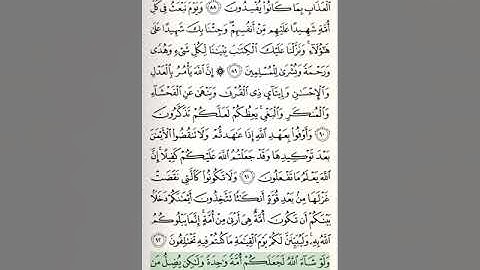 ٱلۡعَذَابِ بِمَا كَانُواْ يُفۡسِدُونَ ٨٨ وَيَوۡمَ نَبۡعَثُ فِي كُلِّ
أُمَّةٖ شَهِيدًا عَلَيۡهِم مِّنۡ أَنفُسِهِمۡۖ وَجِئۡنَا بِكَ شَهِيدًا عَلَىٰ
هَٰٓؤُلَآءِۚ وَنَزَّلۡنَا عَلَيۡكَ ٱلۡكِتَٰبَ تِبۡيَٰنٗا لِّكُلِّ شَيۡءٖ وَهُدٗى
وَرَحۡمَةٗ وَبُشۡرَىٰ لِلۡمُسۡلِمِينَ ٨٩ ۞ إِنَّ ٱللَّهَ يَأۡمُرُ بِٱلۡعَدۡلِ
وَٱلۡإِحۡسَٰنِ وَإِيتَآيِٕ ذِي ٱلۡقُرۡبَىٰ وَيَنۡهَىٰ عَنِ ٱلۡفَحۡشَآءِ
وَٱلۡمُنكَرِ وَٱلۡبَغۡيِۚ يَعِظُكُمۡ لَعَلَّكُمۡ تَذَكَّرُونَ
٩٠ وَأَوۡفُواْ بِعَهۡدِ ٱللَّهِ إِذَا عَٰهَدتُّمۡ وَلَا تَنقُضُواْ ٱلۡأَيۡمَٰنَ
بَعۡدَ تَوۡكِيدِهَا وَقَدۡ جَعَلۡتُمُ ٱللَّهَ عَلَيۡكُمۡ كَفِيلًاۚ إِنَّ
ٱللَّهَ يَعۡلَمُ مَا تَفۡعَلُونَ ٩١ وَلَا تَكُونُواْ كَٱلَّتِي نَقَضَتۡ
غَزۡلَهَا مِنۢ بَعۡدِ قُوَّةٍ أَنكَٰثٗا تَتَّخِذُونَ أَيۡمَٰنَكُمۡ دَخَلَۢا
بَيۡنَكُمۡ أَن تَكُونَ أُمَّةٌ هِيَ أَرۡبَىٰ مِنۡ أُمَّةٍۚ إِنَّمَا يَبۡلُوكُمُ
ٱللَّهُ بِهِۦۚ وَلَيُبَيِّنَنَّ لَكُمۡ يَوۡمَ ٱلۡقِيَٰمَةِ مَا كُنتُمۡ فِيهِ تَخۡتَلِفُونَ ٩٢
وَلَوۡ شَآءَ ٱللَّهُ لَجَعَلَكُمۡ أُمَّةٗ وَٰحِدَةٗ وَلَٰكِن يُضِلُّ مَن